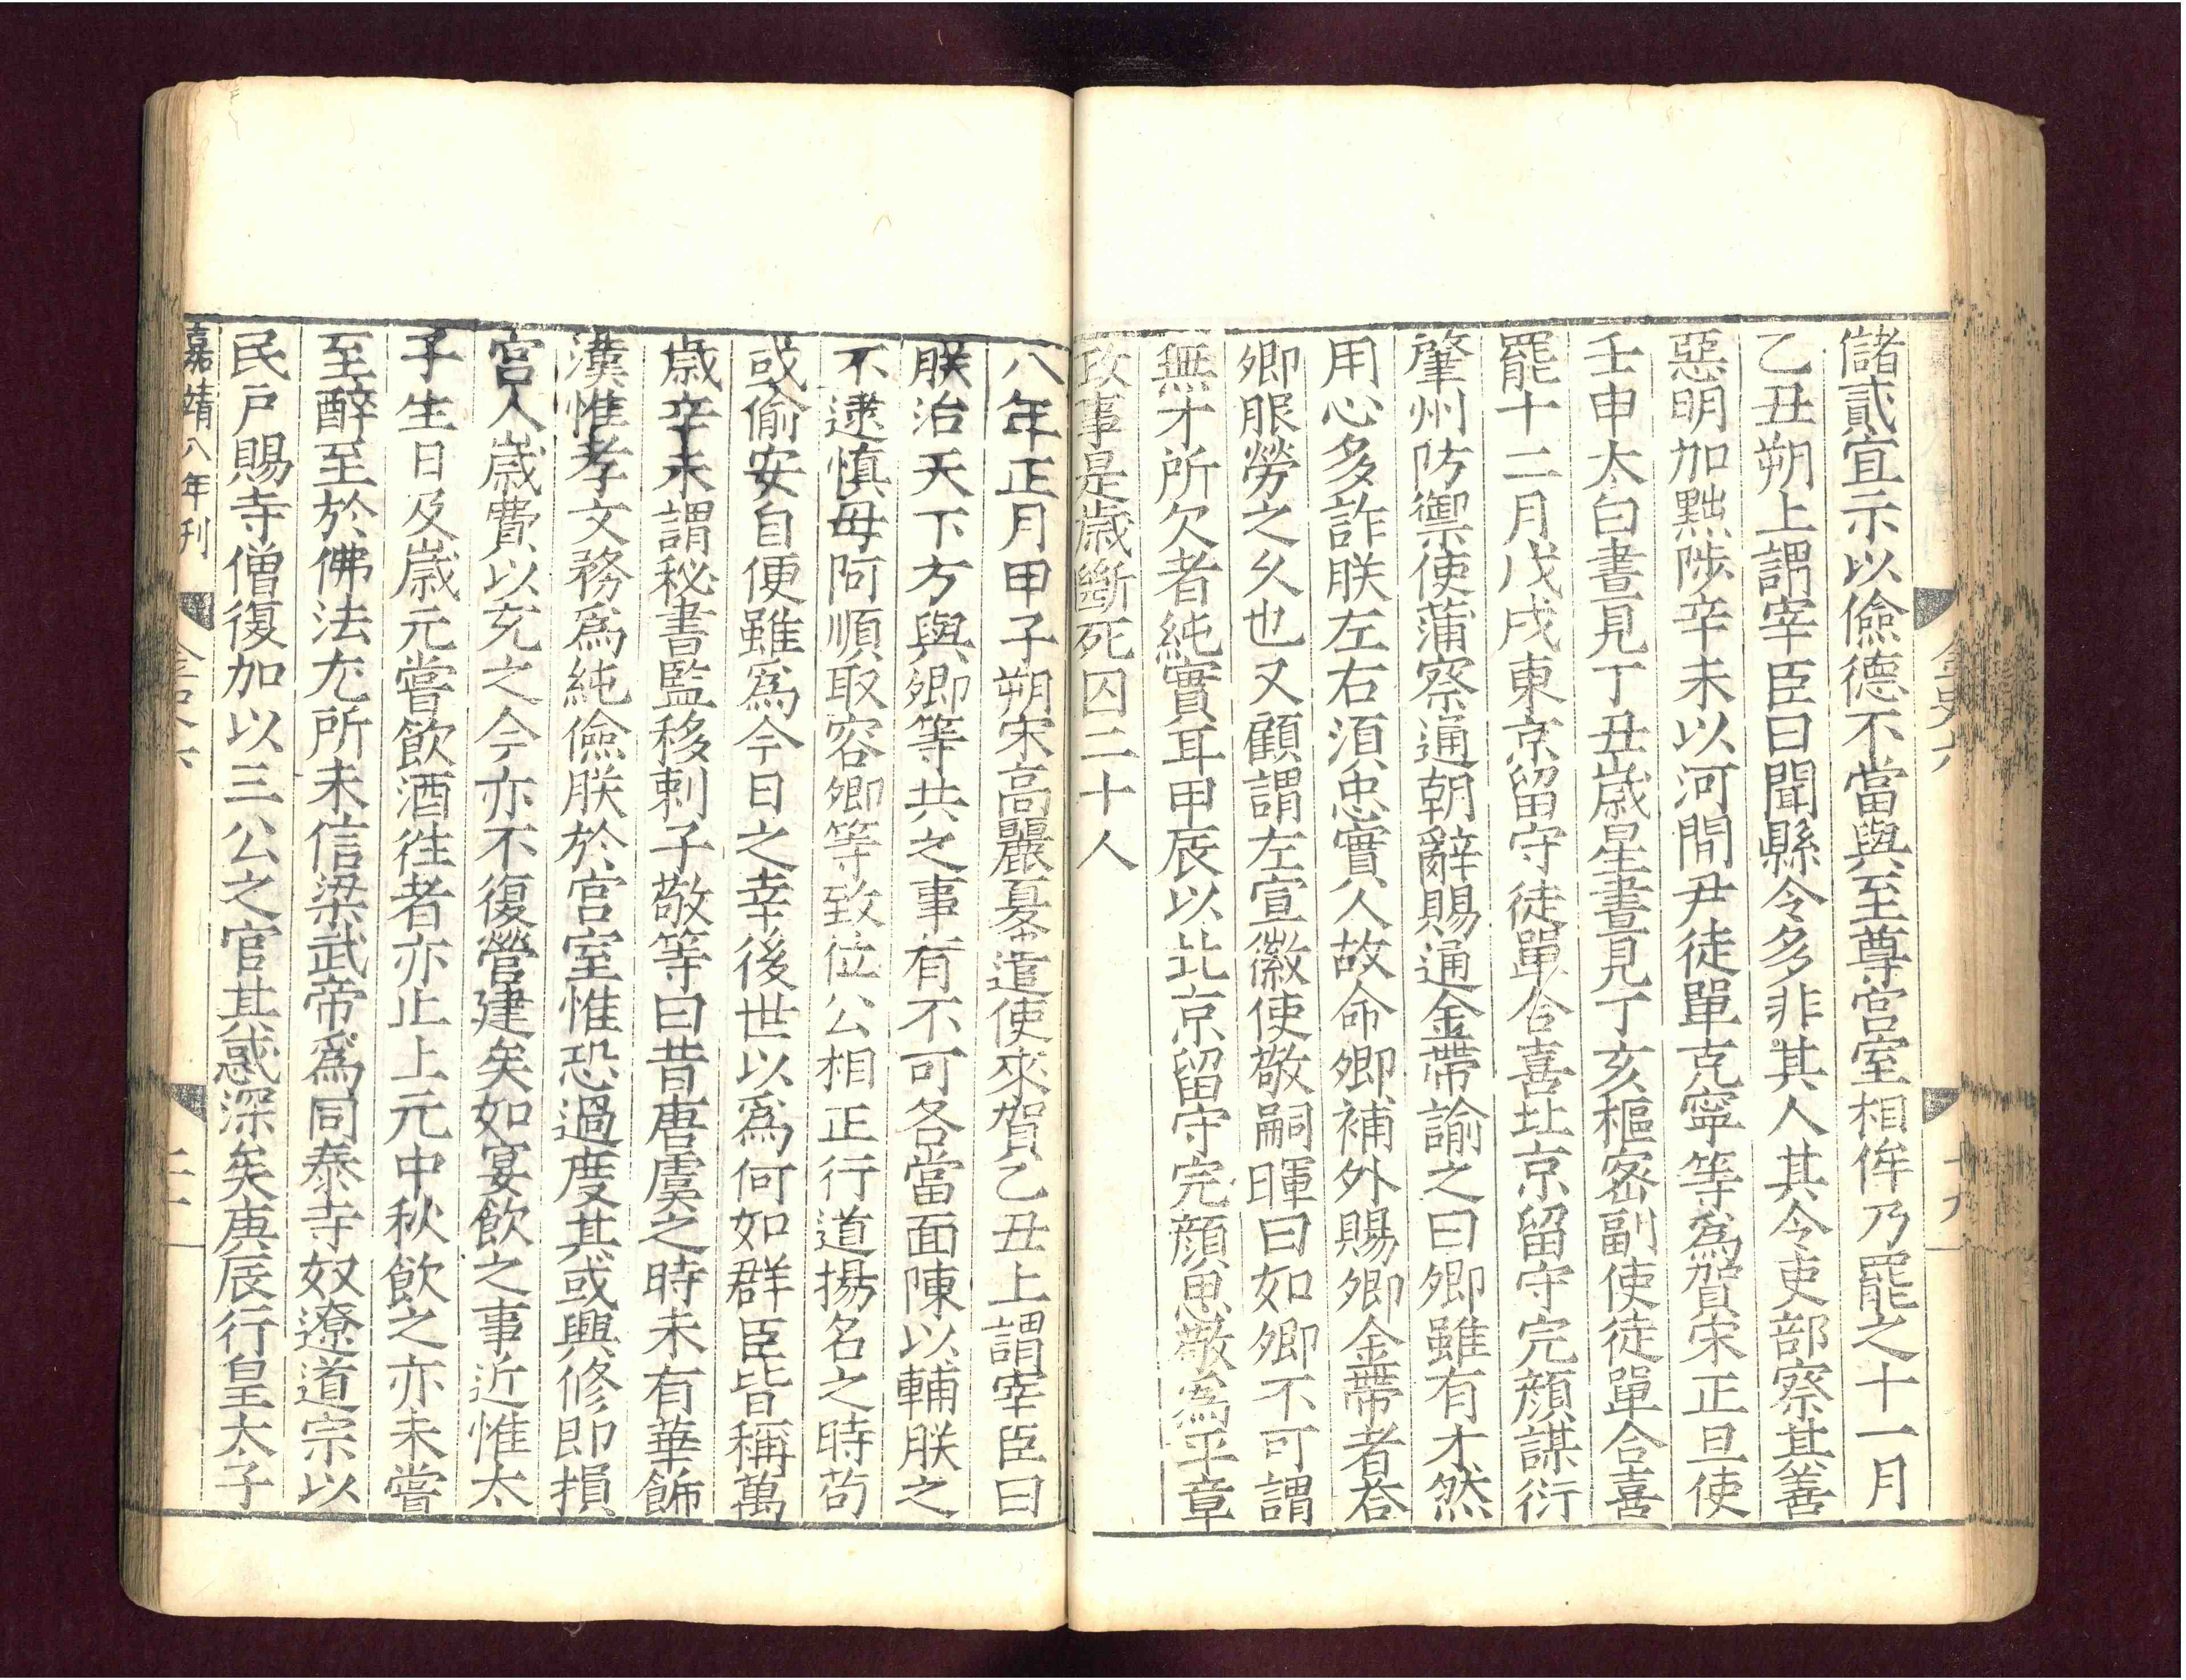 儲貳宜示以儉德不當與至尊宮室相侔乃罷之十一月
乙丑朔上謂宰臣曰聞縣令多非其人其令吏部察其善
惡明加黜陟辛未以河間尹徒單克寧等為賀宋正旦使
壬申太白晝見丁丑歲星晝見丁亥樞密副使徒單合喜
罷十二月戊戌東京留守徒單合喜北京留守完顏謀衍
肇州防禦使蒲察通朝辭賜通金帶諭之曰卿雖有才然
用心多詐朕左右須忠實人故命卿補外賜卿金帶者荅
卿服勞之久也又顧謂左宣徽使敬嗣暉曰如卿不可謂
無才所欠者純實耳甲辰以北京留守完顏思敬為平章
政事是歲斷死囚二十人
八年正月甲子朔宋高麗夏遣使來賀乙丑上謂宰臣曰
朕治天下方與卿等共之事有不可各當面陳以輔朕之
不逮慎毋阿順取容卿等致位公相正行道揚名之時苟
或偷安自便雖爲今日之幸後世以爲何如群臣皆稱萬
歲辛未謂秘書監移剌子敬等曰昔唐虞之時未有華飾
漢惟孝文務爲純儉朕於宮室惟恐過度其或興修即損
宮人歲費以充之今亦不復營建矣如宴飲之事近惟太
子生日及歲元嘗飲酒徃者亦止上元中秋飲之亦未嘗
至醉至於佛法尤所未信梁武帝爲同泰寺奴遼道宗以
民戶賜寺僧復加以三公之官其惑深矣庚辰行皇太子
嘉靖八年刊